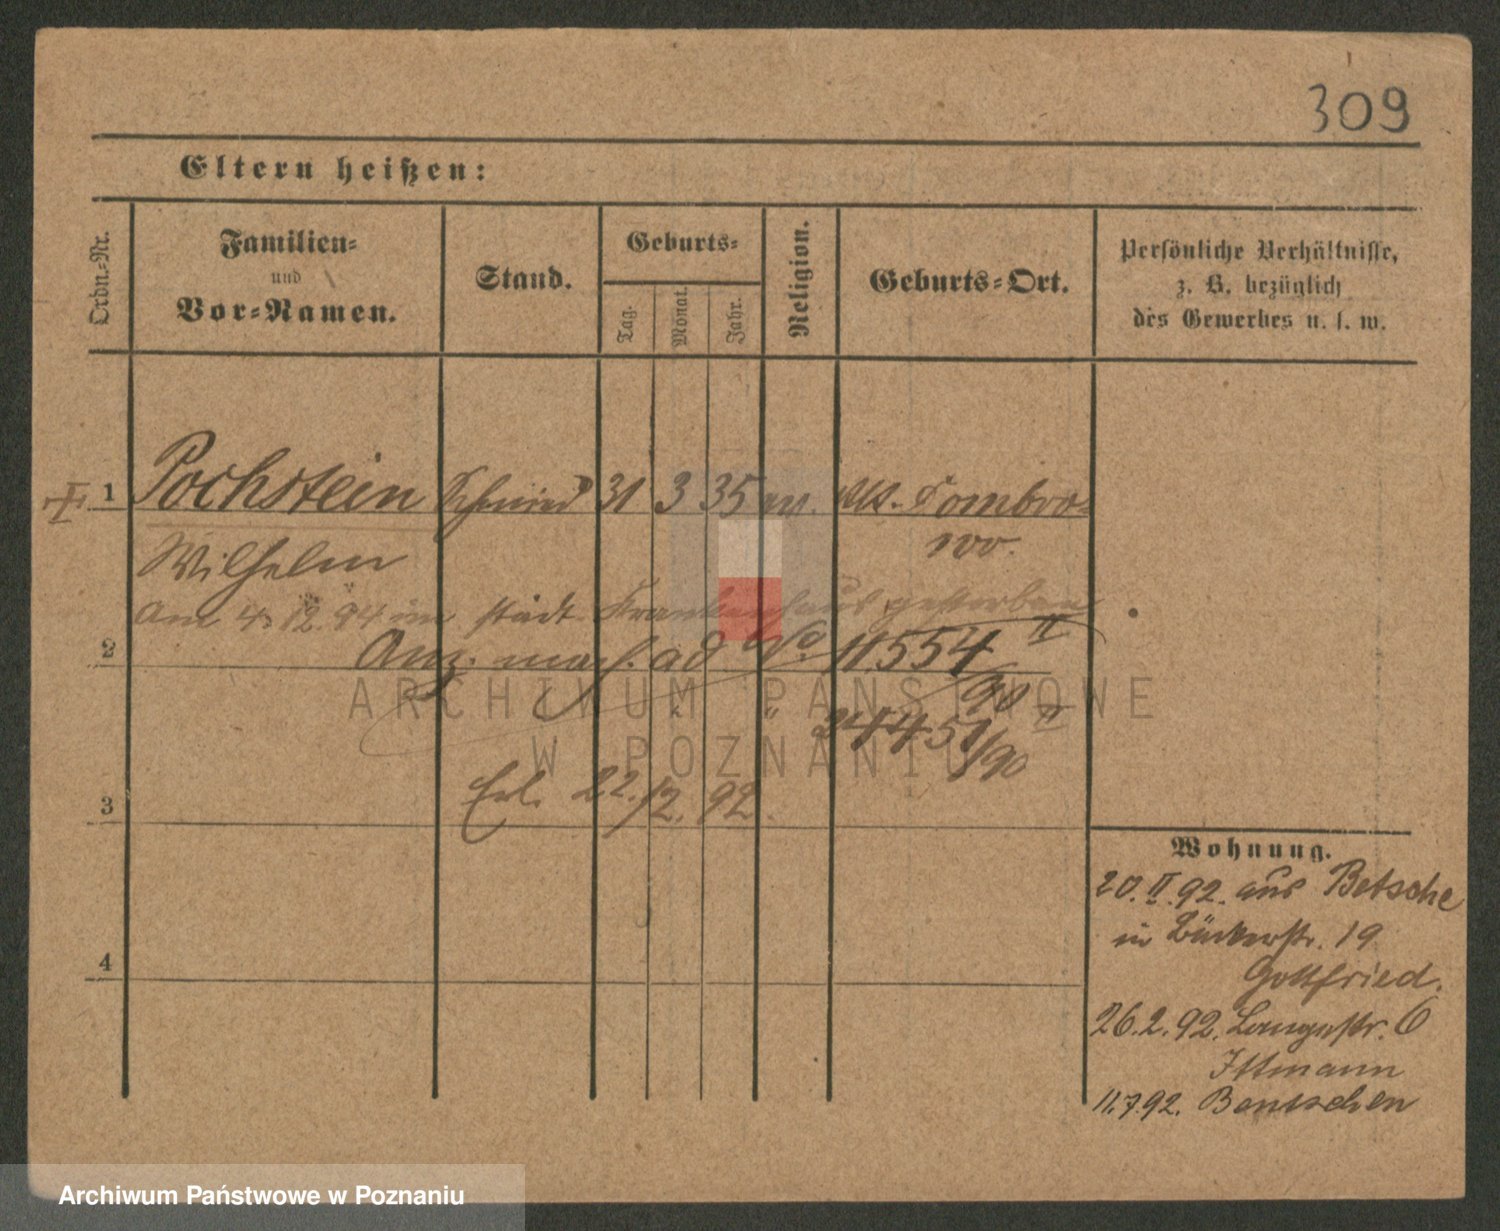 309
Eltern heißen:
Ordn.-Nr.
Familien-
und
Vor-Namen.
Stand.
Geburts-
Tag.
Monat.
Jahr.
Religion.
Geburts-Ort.
Persönliche Verhältnisse,
z. B. bezüglich
des Gewerbes u. s. w.
1 Pochstein Schmied 31 3 35 ev. Alt. Tombro-
wo.
Wilhelm
Am 4. 12. 94 im städt. Krankenhaus gestorben
2
Anz. mach. ad No. 11554/90 II
" " 24451/90 II
3 Erl. 22. 12. 92.
4
Wohnung.
20. II. 92. aus Betsche
in Bäckerstr. 19
Gottfried.
26. 2. 92. Langestr. 6
Ittmann
11. 7. 92. Bentschen
ARCHIWUM PAŃSTWOWE
W POZNANIU
Archiwum Państwowe w Poznaniu